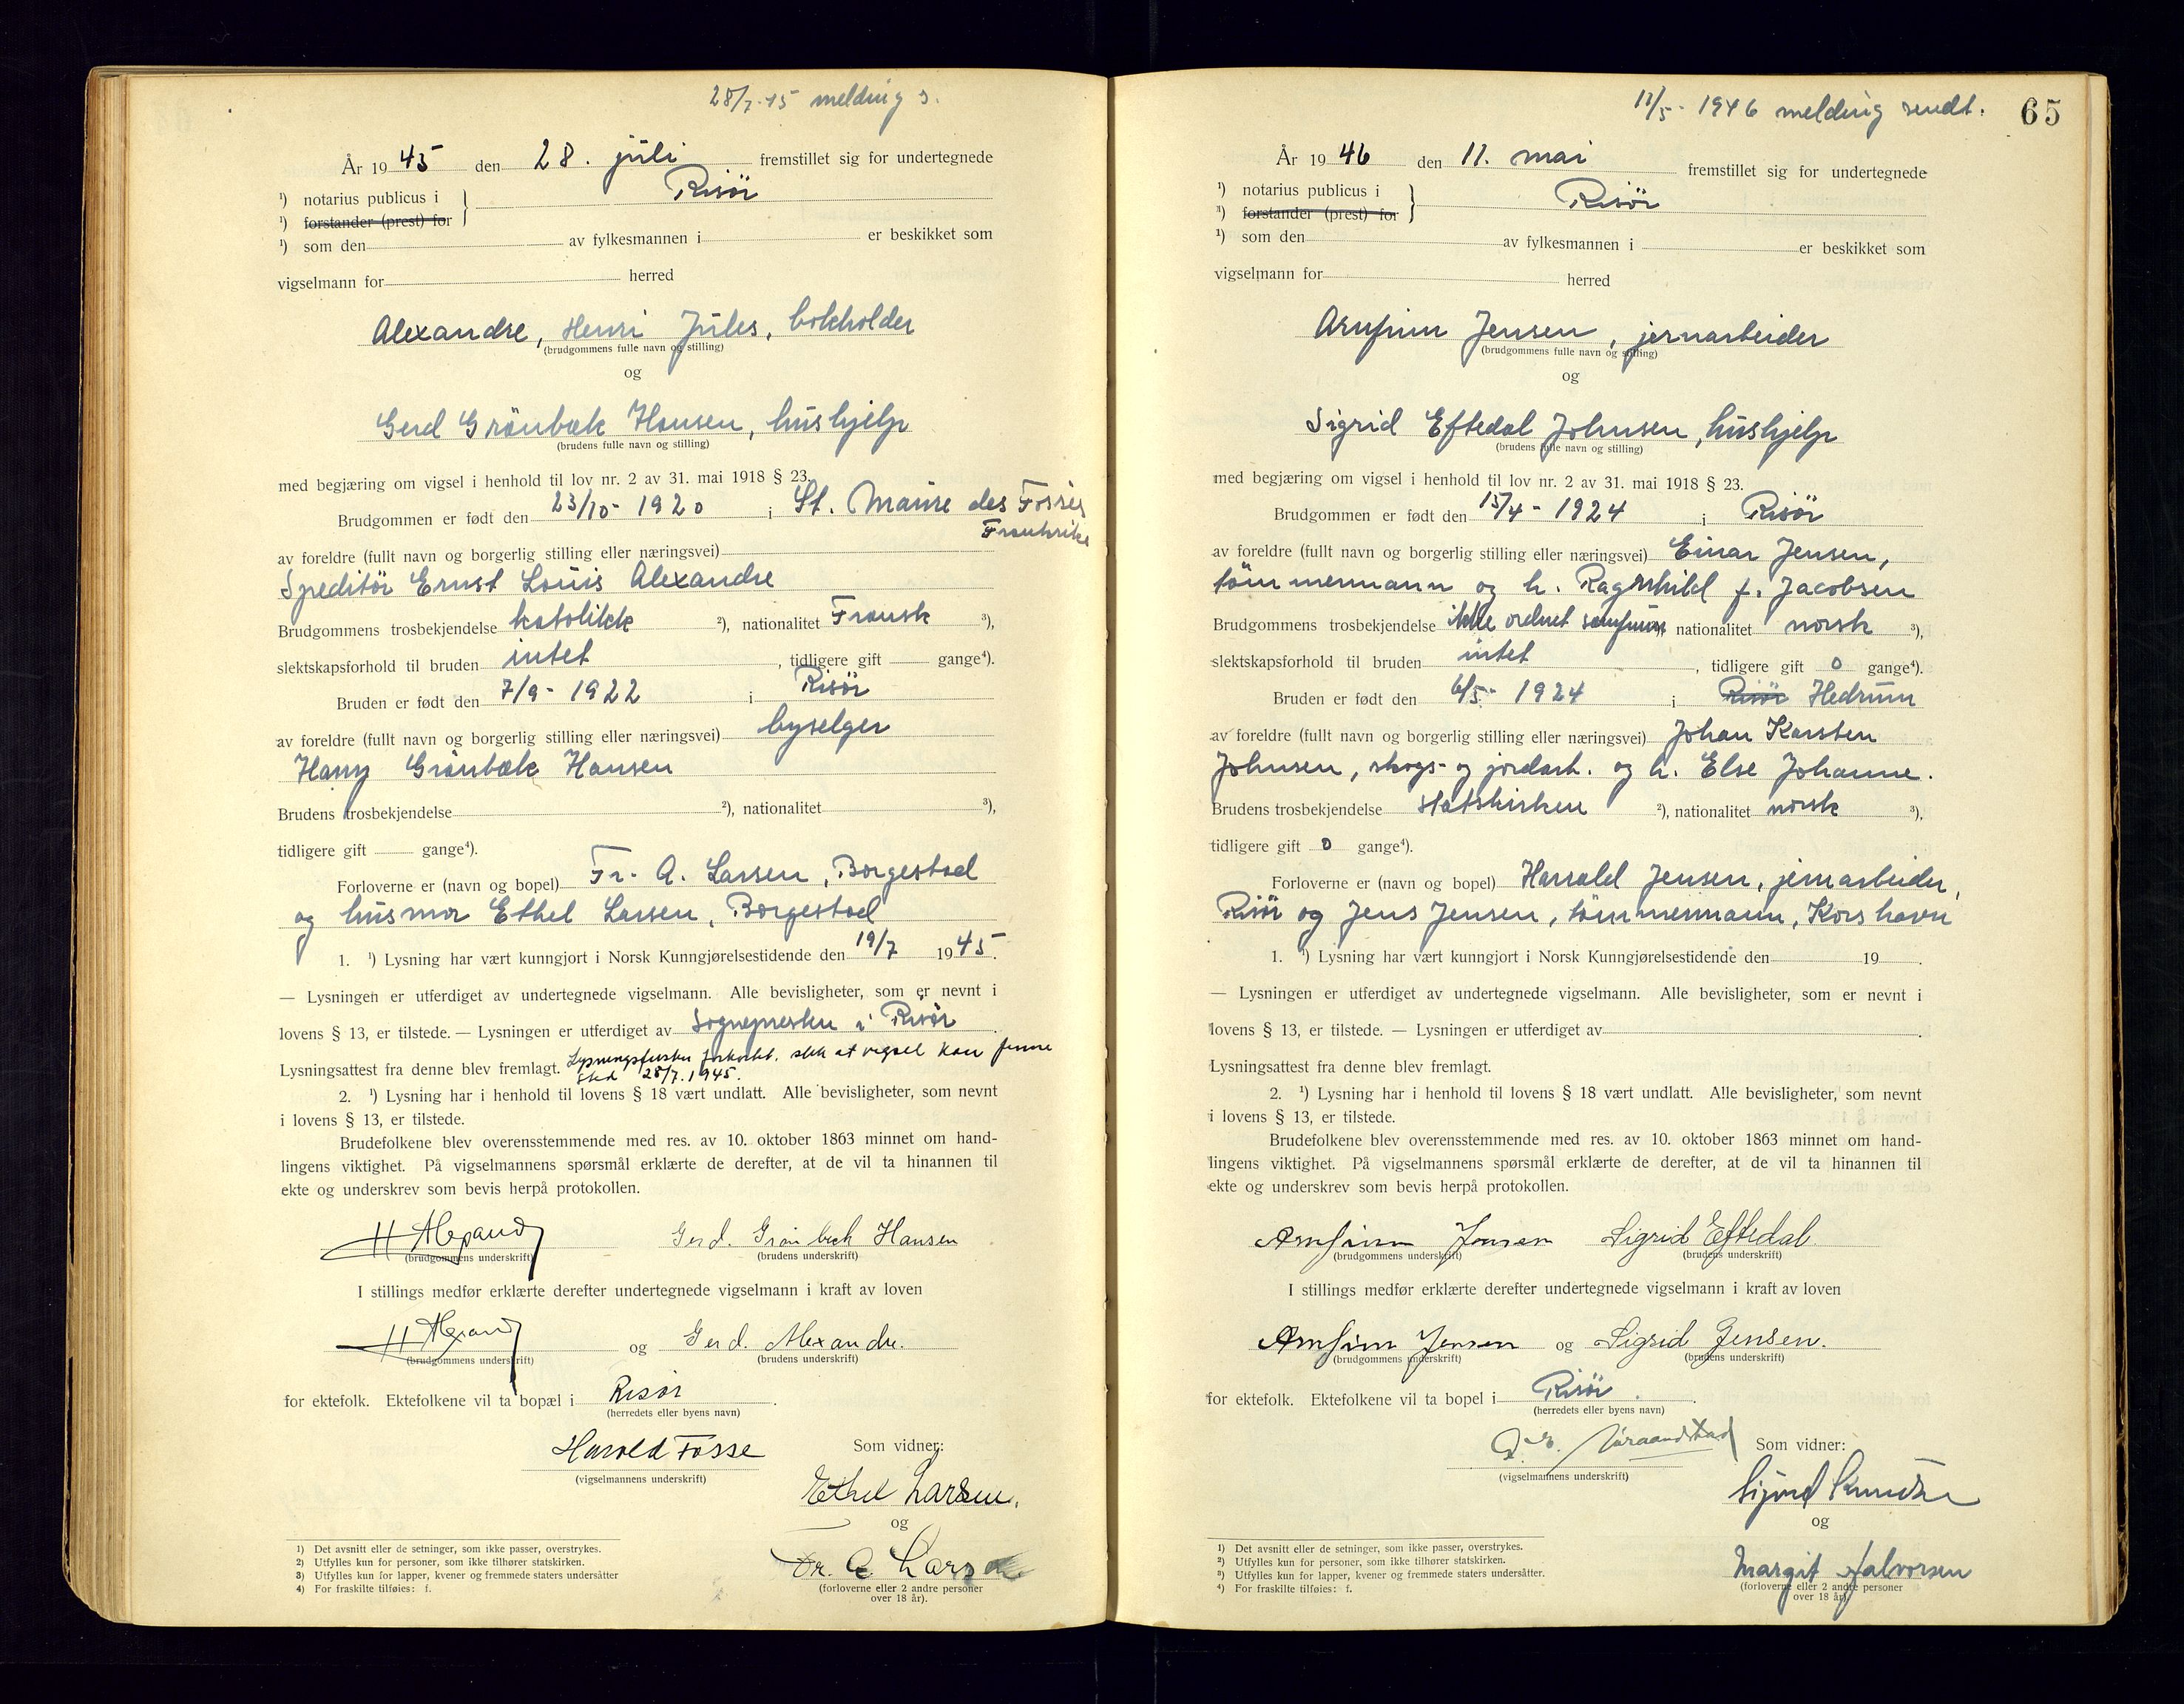 28/7-45 melding s.
År 1945 den 28. juli fremstillet sig for undertegnede
¹) notarius publicus i
Risør
¹) forstander (prest) for
¹) som den av fylkesmannen i er beskikket som
vigselmann for herred
Alexandre, Henri Jules, bokholder
(brudgommens fulle navn og stilling)
og
Gerd Grønbæk Hansen, hushjelp
(brudens fulle navn og stilling)
med begjæring om vigsel i henhold til lov nr. 2 av 31. mai 1918 § 23.
Brudgommen er født den 23/10-1920 i St. Maure des Fosses
Frankrike
av foreldre (fullt navn og borgerlig stilling eller næringsvei)
Speditør Ernst Louis Alexandre
Brudgommens trosbekjendelse katolikk ²), nationalitet Fransk ³),
slektskapsforhold til bruden intet, tidligere gift gange⁴).
Bruden er født den 7/9-1922 i Risør
av foreldre (fullt navn og borgerlig stilling eller næringsvei) byselger
Harry Grønbæk Hansen
Brudens trosbekjendelse ²), nationalitet ³),
tidligere gift gange⁴).
Forloverne er (navn og bopel) Fr. A. Larsen, Borgestad
og husmor Ethel Larsen, Borgestad
1. ¹) Lysning har vært kunngjort i Norsk Kunngjørelsestidende den 19/7 1945.
— Lysningen er utferdiget av undertegnede vigselmann. Alle bevisligheter, som er nevnt i
lovens § 13, er tilstede. — Lysningen er utferdiget av Sognepresten i Risør.
Lysningsattest fra denne blev fremlagt. Lysningsfristen forkortet. slik at vigsel kan finne
sted 28/7.1945.
2. ¹) Lysning har i henhold til lovens § 18 vært undlatt. Alle bevisligheter, som nevnt
i lovens § 13, er tilstede.
Brudefolkene blev overensstemmende med res. av 10. oktober 1863 minnet om hand-
lingens viktighet. På vigselmannens spørsmål erklærte de derefter, at de vil ta hinannen til
ekte og underskrev som bevis herpå protokollen.
H Alexandre Gerd. Grønbech Hansen
(brudgommens underskrift) (brudens underskrift)
I stillings medfør erklærte derefter undertegnede vigselmann i kraft av loven
H Alexandre og Gerd. Alexandre.
(brudgommens underskrift) (brudens underskrift)
for ektefolk. Ektefolkene vil ta bopæl i Risør.
(herredets eller byens navn)
Harold Fosse Som vidner:
(vigselmannens underskrift)
Ethel Larsen.
og
Fr. A Larsen
(forloverne eller 2 andre personer
over 18 år).
1) Det avsnitt eller de setninger, som ikke passer, overstrykes.
2) Utfylles kun for personer, som ikke tilhører statskirken.
3) Utfylles kun for lapper, kvener og fremmede staters undersåtter
4) For fraskilte tilføies: f.
11/5-1946 melding sendt. 65
År 1946 den 11. mai fremstillet sig for undertegnede
¹) notarius publicus i
Risør
¹) forstander (prest) for
¹) som den av fylkesmannen i er beskikket som
vigselmann for herred
Arnfinn Jensen, jernarbeider
(brudgommens fulle navn og stilling)
og
Sigrid Eftedal Johnsen, hushjelp
(brudens fulle navn og stilling)
med begjæring om vigsel i henhold til lov nr. 2 av 31. mai 1918 § 23.
Brudgommen er født den 15/4-1924 i Risør
av foreldre (fullt navn og borgerlig stilling eller næringsvei) Einar Jensen,
tømmermann og h. Ragnhild f. Jacobsen
Brudgommens trosbekjendelse ikke ordnet samfunn, nationalitet norsk ³),
slektskapsforhold til bruden intet, tidligere gift 0 gange⁴).
Bruden er født den 6/5-1924 i Risør Hedrum
av foreldre (fullt navn og borgerlig stilling eller næringsvei) Johan Karsten
Johnsen, skogs- og jordarb. og h. Else Johanne.
Brudens trosbekjendelse Statskirken ²), nationalitet norsk ³),
tidligere gift 0 gange⁴).
Forloverne er (navn og bopel) Harrald Jensen, jernarbeider,
Risør og Jens Jensen, tømmermann, Korshavn
1. ¹) Lysning har vært kunngjort i Norsk Kunngjørelsestidende den 19.
— Lysningen er utferdiget av undertegnede vigselmann. Alle bevisligheter, som er nevnt i
lovens § 13, er tilstede. — Lysningen er utferdiget av.
Lysningsattest fra denne blev fremlagt.
2. ¹) Lysning har i henhold til lovens § 18 vært undlatt. Alle bevisligheter, som nevnt
i lovens § 13, er tilstede.
Brudefolkene blev overensstemmende med res. av 10. oktober 1863 minnet om hand-
lingens viktighet. På vigselmannens spørsmål erklærte de derefter, at de vil ta hinannen til
ekte og underskrev som bevis herpå protokollen.
Arnfinn Jensen Sigrid Eftedal
(brudgommens underskrift) (brudens underskrift)
I stillings medfør erklærte derefter undertegnede vigselmann i kraft av loven
Arnfinn Jensen og Sigrid Jensen.
(brudgommens underskrift) (brudens underskrift)
for ektefolk. Ektefolkene vil ta bopel i Risør.
(herredets eller byens navn)
Som vidner:
(vigselmannens underskrift)
Sigurd Knudsen
og
Margit Halvorsen
(forloverne eller 2 andre personer
over 18 år).
1) Det avsnitt eller de setninger, som ikke passer, overstrykes.
2) Utfylles kun for personer, som ikke tilhører statskirken.
3) Utfylles kun for lapper, kvener og fremmede staters undersåtter.
4) For fraskilte tilføies: f.